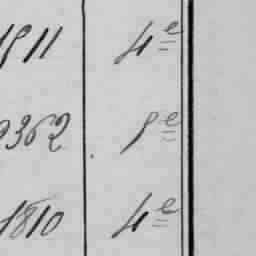 1511 4e
9362 8e
1810 4e